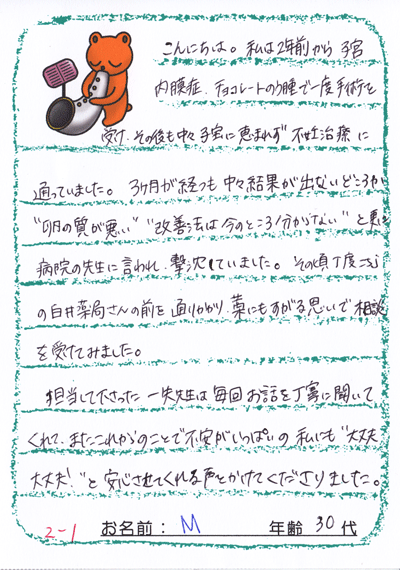 こんにちは。私は2年前から子宮
内膜症、チョコレートのう腫で一度手術を
受け、その後も中々子宝に恵まれず不妊治療に
通っていました。3ヶ月が経つも中々結果が出ないどころか
"卵の質が悪い" "改善法は今のところ分からない" と更に
病院の先生に言われ、撃沈していました。その頃丁度こちら
の白井薬局さんの前を通りかかり、藁にもすがる思いで相談
を受けてみました。
担当して下さった一先先生は毎回お話を丁寧に聞いて
くれて、またこれからのことで不安がいっぱいの私にも"大丈夫
大丈夫!"と安心させてくれる声をかけてくださりました。
2-1 お名前: M 年齢 30代